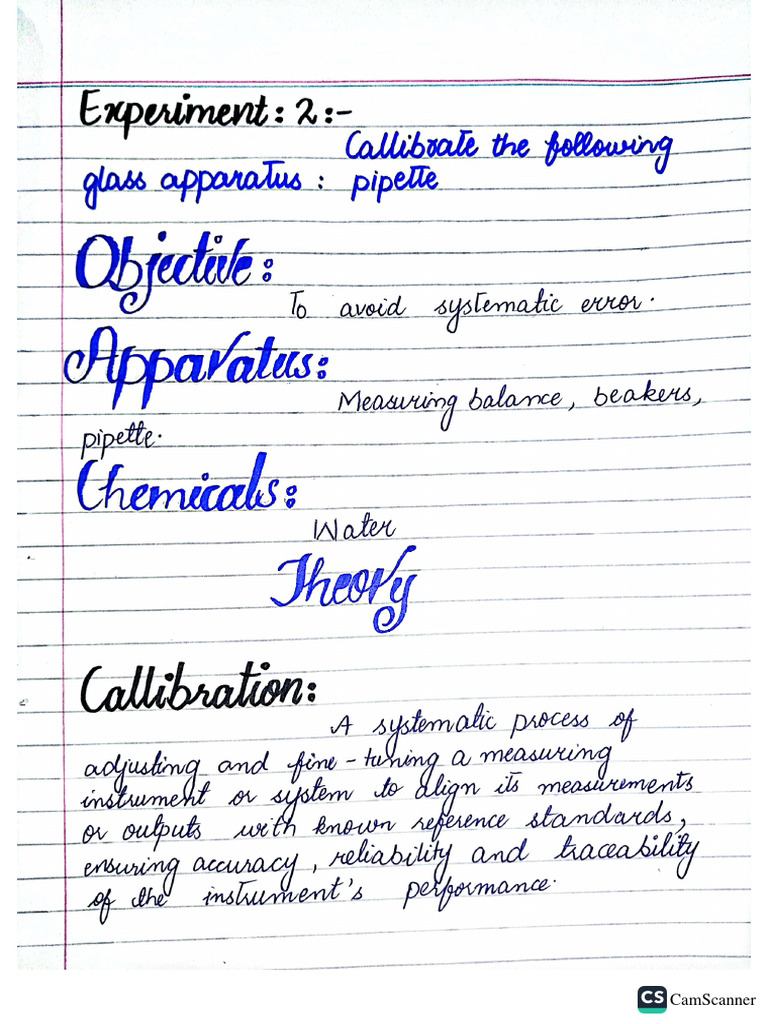 Experiment: 2:-
Callibrate the following
glass apparatus : pipette
Objective:
To avoid systematic error.
Apparatus:
Measuring balance, beakers,
pipette.
Chemicals:
Water
Theory
Callibration:
A systematic process of
adjusting and fine-tuning a measuring
instrument or system to align its measurements
or outputs with known reference standards,
ensuring accuracy, reliability and traceability
of the instrument's performance.
CS CamScanner